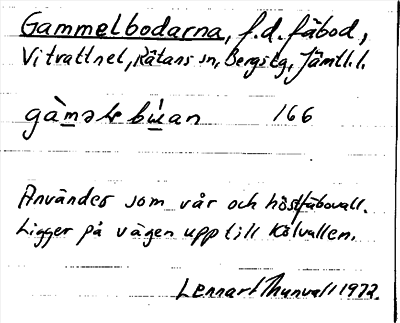 Gammelbodarna, f.d. fäbod,
Vitvattnet, Rätans sn, Bergs tg, Jämtl. l.
166
Användes som vår och höstfäbovall.
Ligger på vägen upp till Kölvallen.
Lennart Thunvall 1972.